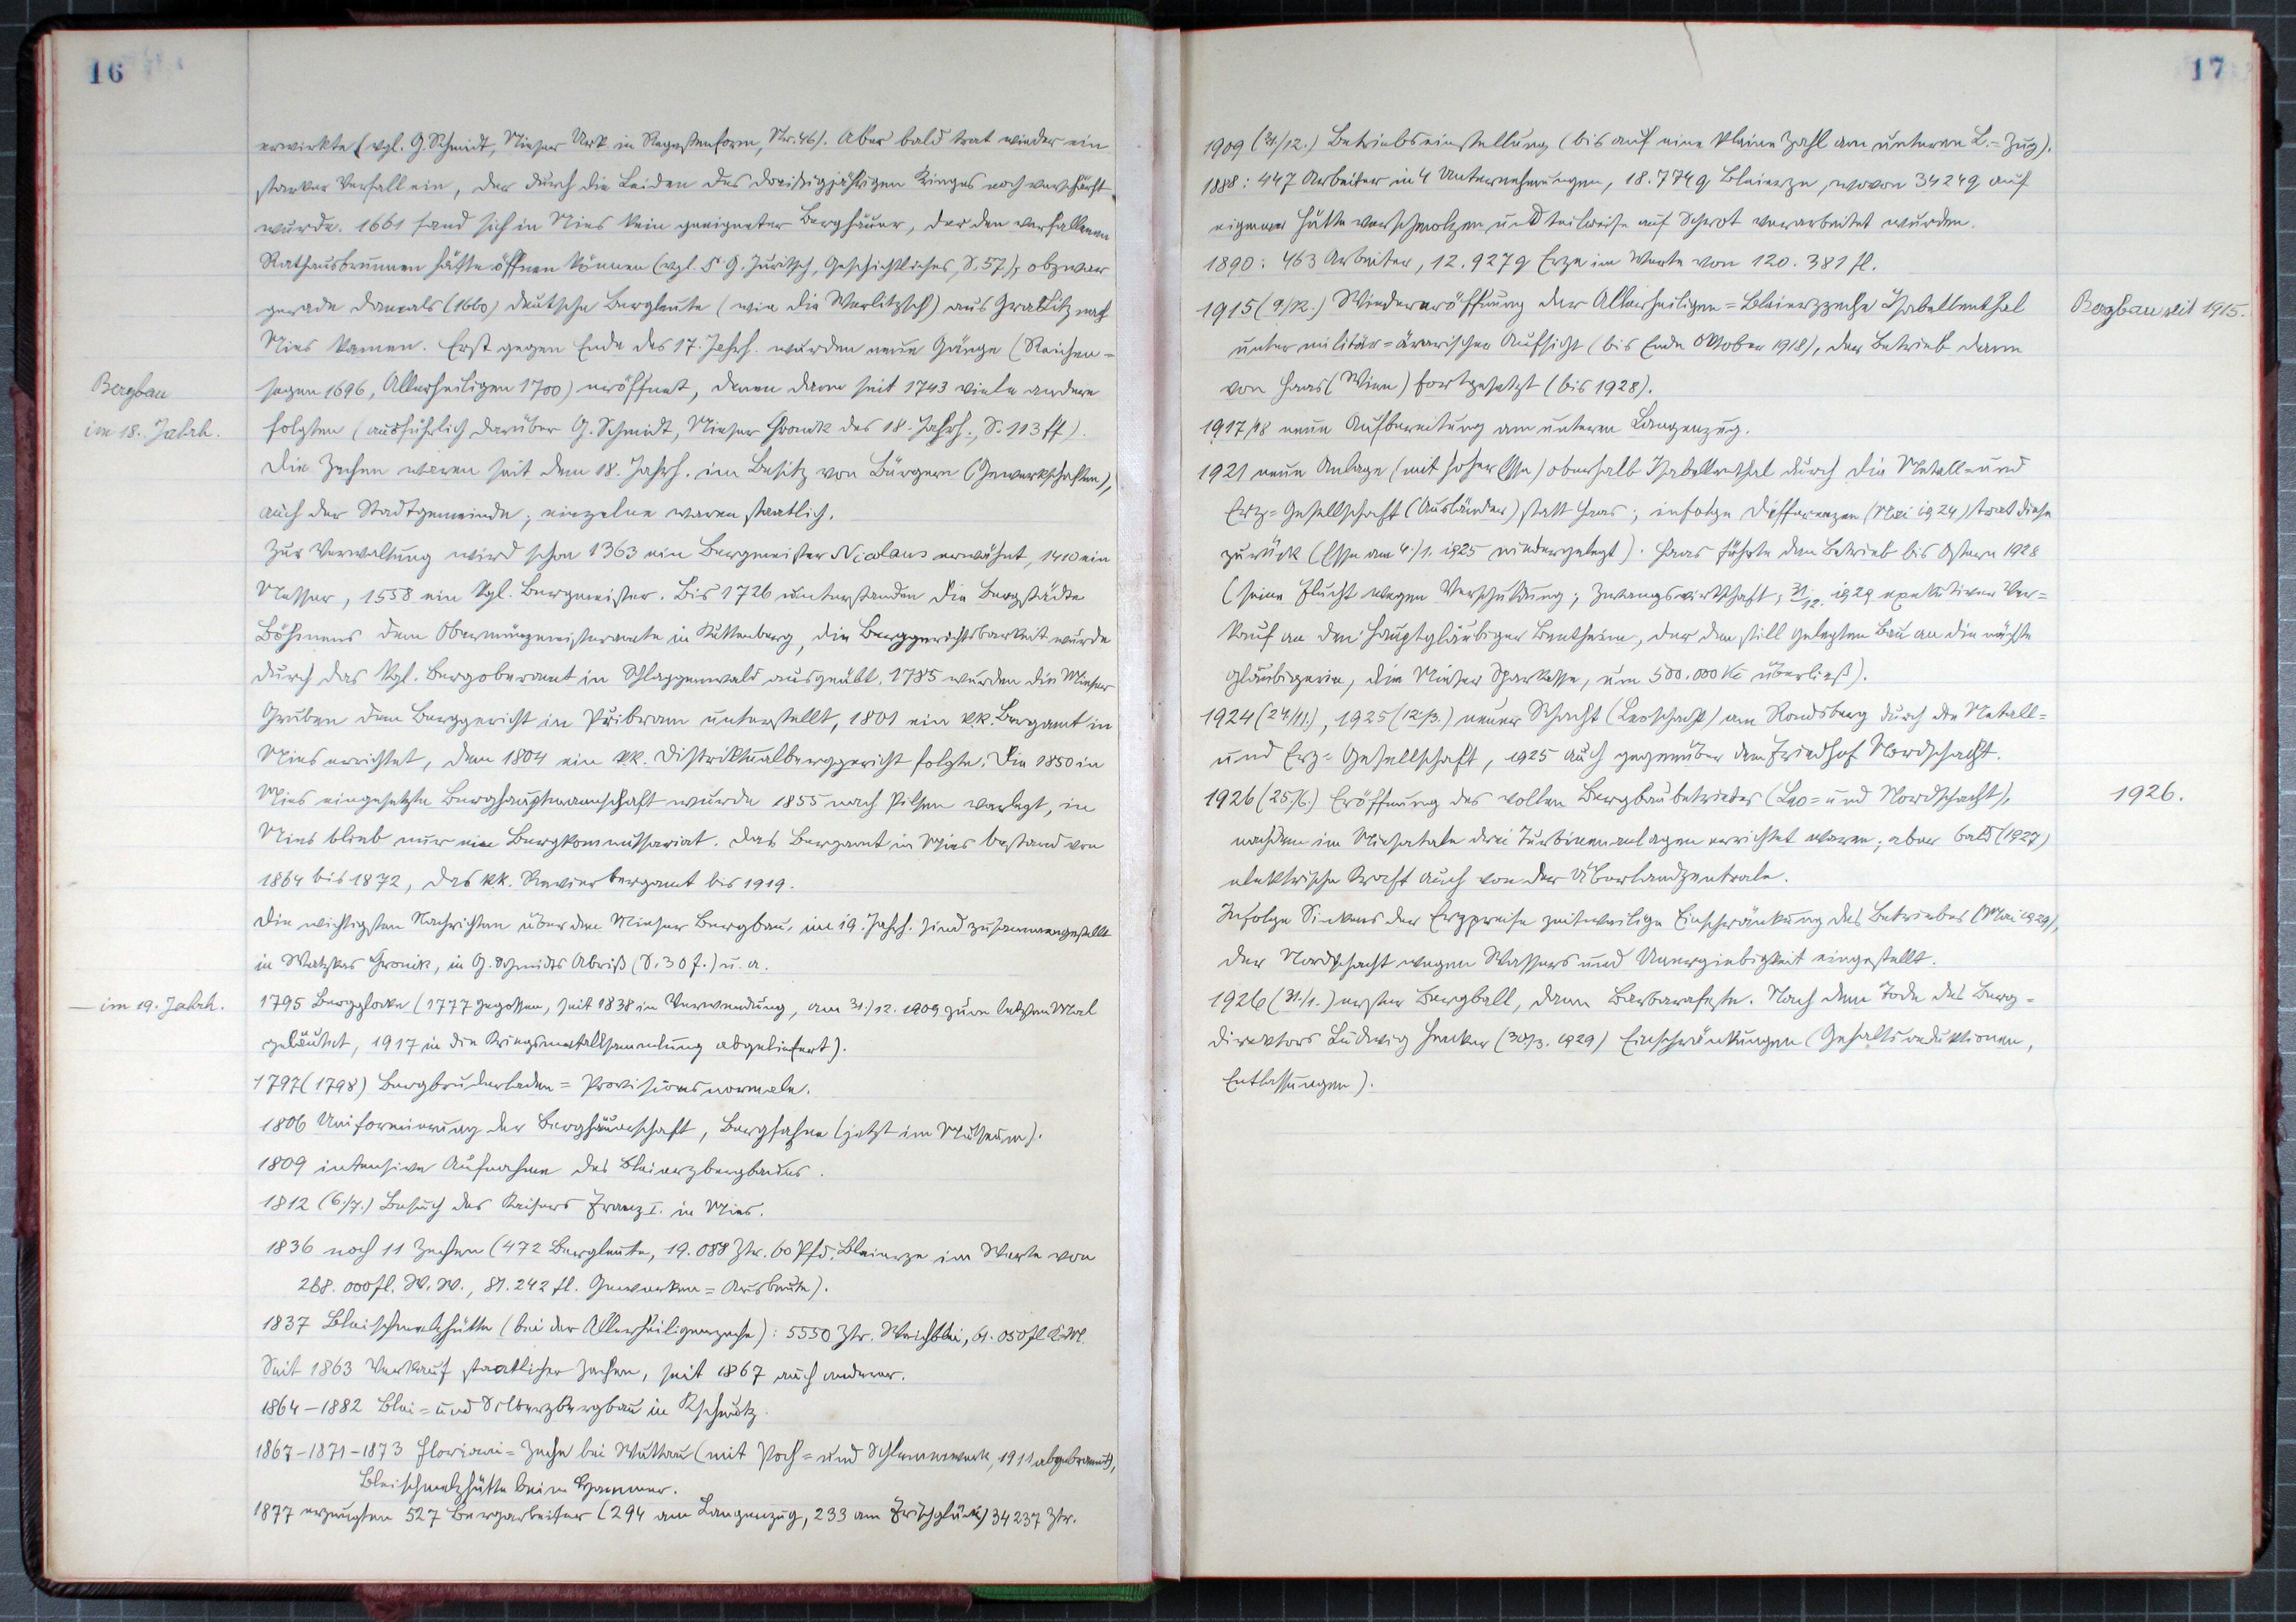 16
erwirkte (vgl. G. Schmidt, Mieser Urk. in Regestenform, Nr. 46). Aber bald trat wieder ein
starker Verfall ein, der durch die Leiden des dreißigjährigen Krieges noch verschärft
wurde. 1661 fand sich in Mies kein geeigneter Berghäuer, der den verfallenen
Rathausbrunnen hätte öffnen können (vgl. G. Juritsch, Geschichtliches, S. 57), obzwar
gerade damals (1660) deutsche Bergleute (wie die Werlitzsch) aus Graslitz nach
Mies kamen. Erst gegen Ende des 17. Jahrh. wurden neue Gänge (Reichen=
Bergbau
im 18. Jahrh.
segen 1696, Allerheiligen 1700) eröffnet, denen dann seit 1743 viele andere
folgten (ausführlich darüber G. Schmidt, Mieser Chronik des 18. Jahrh., S. 113 ff).
Die Zechen waren seit dem 18. Jahrh. im Besitz von Bürgern (Gewerkschaften),
auch der Stadtgemeinde; einzelne waren staatlich.
Zur Verwaltung wird schon 1363 ein Bergmeister Nicolaus erwähnt, 1410 ein
Messer, 1558 ein kgl. Bergmeister. Bis 1726 unterstanden die Bergstädte
Böhmens dem Obermünzmeisteramte in Kuttenberg, die Berggerichtsbarkeit wurde
durch das kgl. Bergoberamt in Schlaggenwald ausgeübt. 1785 wurden die Mieser
Gruben dem Berggericht in Přibram unterstellt, 1801 ein k.k. Bergamt in
Mies errichtet, dem 1804 ein k.k. Distriktualberggericht folgte. Die 1850 in
Mies eingesetzte Berghauptmannschaft wurde 1855 nach Pilsen verlegt, in
Mies blieb nur ein Bergkommissariat. Das Bergamt in Mies bestand von
1864 bis 1872, das k.k. Revierbergamt bis 1919.
Die wichtigsten Nachrichten über den Mieser Bergbau im 19. Jahrh. sind zusammengestellt
in Watzkas Chronik, in G. Schmidts Abriß (S. 30 f.) u. a.
— im 19. Jahrh.
1795 Bergglocke (1777 gegossen, seit 1838 in Verwendung, am 31./12. 1909 zum letzten Mal
geläutet, 1917 in die Kriegsmetallsammlung abgeliefert).
1797 (1798) Bergbruderladen = Provisionsnormale.
1806 Uniformierung der Berghäuerschaft, Bergfahne (jetzt im Museum).
1809 intensive Aufnahme des Bleierzbergbaues.
1812 (6./7.) Besuch des Kaisers Franz I. in Mies.
1836 noch 11 Zechen (472 Bergleute, 19.088 Ztr. 60 Pfd. Bleierze im Werte von
268.000 fl. W. W., 81.242 fl. Gewerken = Ausbeute).
1837 Bleischmelzhütte (bei der Allerheiligenzeche): 5550 Ztr. Weichblei, 61.050 fl
Seit 1863 Verkauf staatlicher Zechen, seit 1867 auch anderer.
1864–1882 Blei= und Silbererzbergbau in Kscheutz.
1867–1871–1873 Floriani=Zeche bei Wuttau (mit Poch= und Schlemmwerk, 1911 abgebrannt),
Bleischmelzhütte beim Hammer.
1877 erzeugten 527 Bergarbeiter (294 am Langenzug, 233 am Frischglück) 34237 Ztr.
17
1909 (31./12.) Betriebseinstellung (bis auf eine kleine Zahl am unteren L.=Zug).
1888: 447 Arbeiter in 4 Unternehmungen, 18.774 q Bleierze, wovon 3424 q auf
eigener Hütte verschmolzen und teilweise auf Schrot verarbeitet wurden.
1890: 463 Arbeiter, 12.927 q Erze im Werte von 120.381 fl.
1915 (9./12.) Wiedereröffnung der Allerheiligen=Bleierzzeche Isabellenthal
Bergbau seit 1915.
unter militär=ärarischer Aufsicht (bis Ende Oktober 1918), der Betrieb dann
von Haas (Wien) fortgesetzt (bis 1928).
1917/18 neue Aufbereitung am unteren Langenzug.
1921 neue Anlage (mit hoher Esse) oberhalb Isabellenthal durch die Metall= und
Erz=Gesellschaft (Ausländer) statt Haas; infolge Differenzen (Mai 1924) trat diese
zurück (Esse am 4./1. 1925 niedergelegt). Haas führte den Betrieb bis Ostern 1928
(seine Flucht wegen Verschuldung; Zwangswirtschaft; 31/12. 1929 exekutiver Ver=
kauf an den Hauptgläubiger Bentheim, der den still gelegten Bau an die nächste
Gläubigerin, die Mieser Sparkasse, um 500.000 Kč überließ).
1924 (24./11.), 1925 (12./3.) neuer Schacht (Leoschacht) am Ronsberg durch die Metall=
und Erz=Gesellschaft, 1925 auch gegenüber dem Friedhof Nordschacht.
1926 (25./6.) Eröffnung des vollen Bergbaubetriebes (Leo= und Nordschacht),
1926.
nachdem im Miesatale drei Turbinenanlagen errichtet waren; aber bald (1927)
elektrische Kraft auch von der Überlandzentrale.
Infolge Sinkens der Erzpreise zeitweilige Einschränkung des Betriebes (Mai 1929),
der Nordschacht wegen Wassers und Unergiebigkeit eingestellt.
1926 (31./1.) erster Bergball, dann Barbarafeste. Nach dem Tode des Berg=
direktors Ludwig Henker (30/3. 1929) Einschränkungen (Gehaltsreduktionen,
Entlassungen).